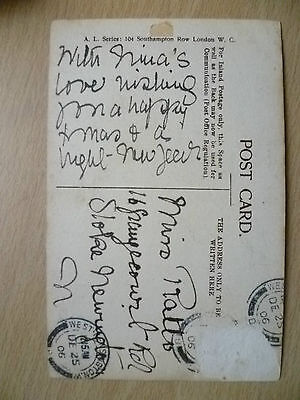 A. L. Series: 104 Southampton Row London W. C.
For Inland Postage only, this Space as
well as the Back may now be used for
Communication (Post Office Regulation).
POST CARD.
THE ADDRESS ONLY TO BE
WRITTEN HERE.
With Nina's
love wishing
you a happy
Xmas & a
bright New Year
Miss Platt
16 Rd
Stoke Newington
N
WEST KENSINGTON. W
6.15 AM
DE 25
06
DE 25
06